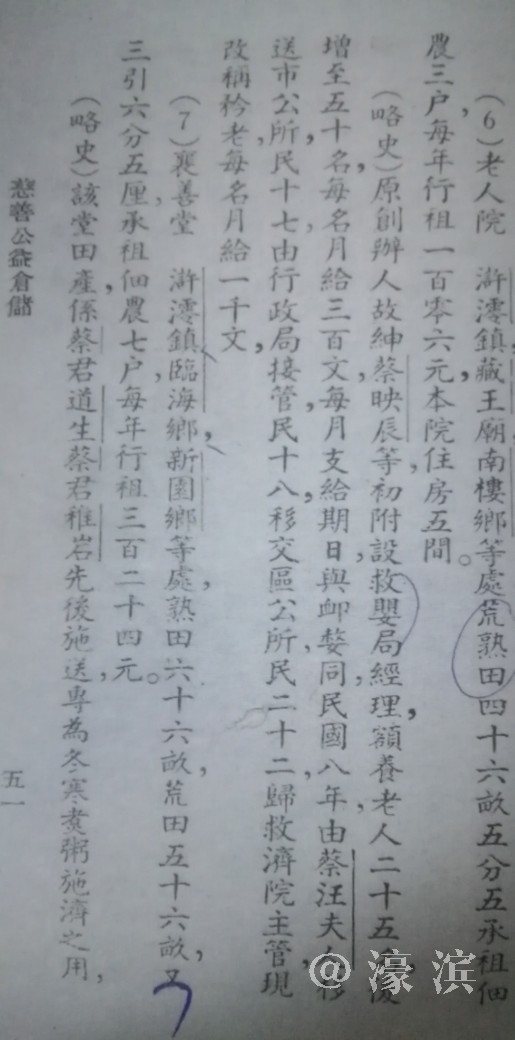 (6)老人院 滸澪鎮,藏王廟南樓鄉等處荒熟田四十六畝五分五承祖佃
農三户,每年行祖一百零六元,本院住房五間。
(略史)原創辦人故紳蔡映辰等,初附設救嬰局經理,額養老人二十五名,後
增至五十名,每名月給三百文,每月支給期日,與卹嫠同,民國八年由蔡汪夫人移
送市公所,民十七由行政局接管,民十八移交區公所,民二十二,歸救濟院主管,現
改稱矜老,每名月給一千文,
(7)襄善堂 滸澪鎮,臨海鄉,新園鄉等處,熟田六十六畝,荒田五十六畝,又
三引六分五厘,承祖佃農七户,每年行祖三百二十四元。
(略史)該堂田產,係蔡君道生蔡君稚岩先後施送,專為冬寒煑粥施濟之用,
慈善公益倉儲
五一
@濠滨